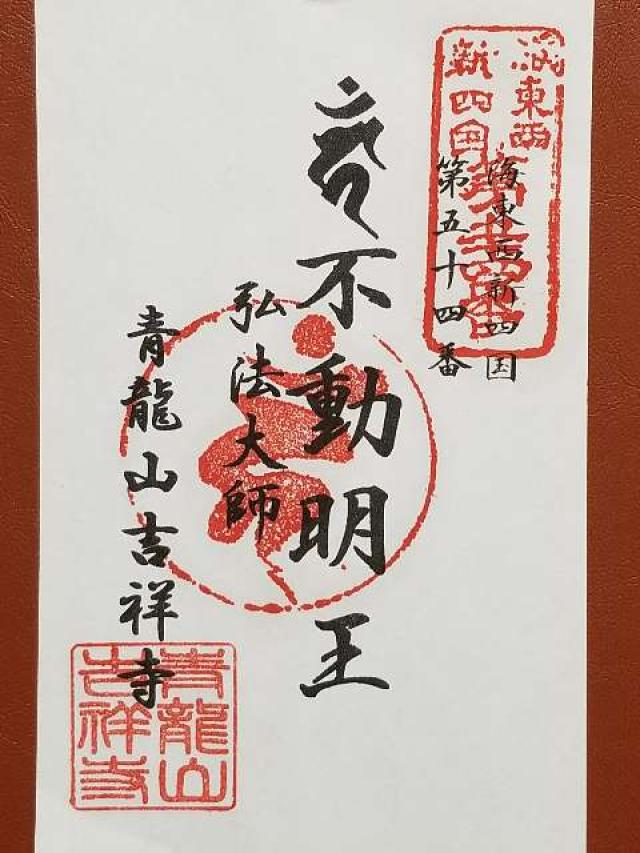 海東西新四国
第五十四番
不動明王
弘法大師
青龍山吉祥寺
海東西
新四国
第五十四番
青龍山
吉祥寺